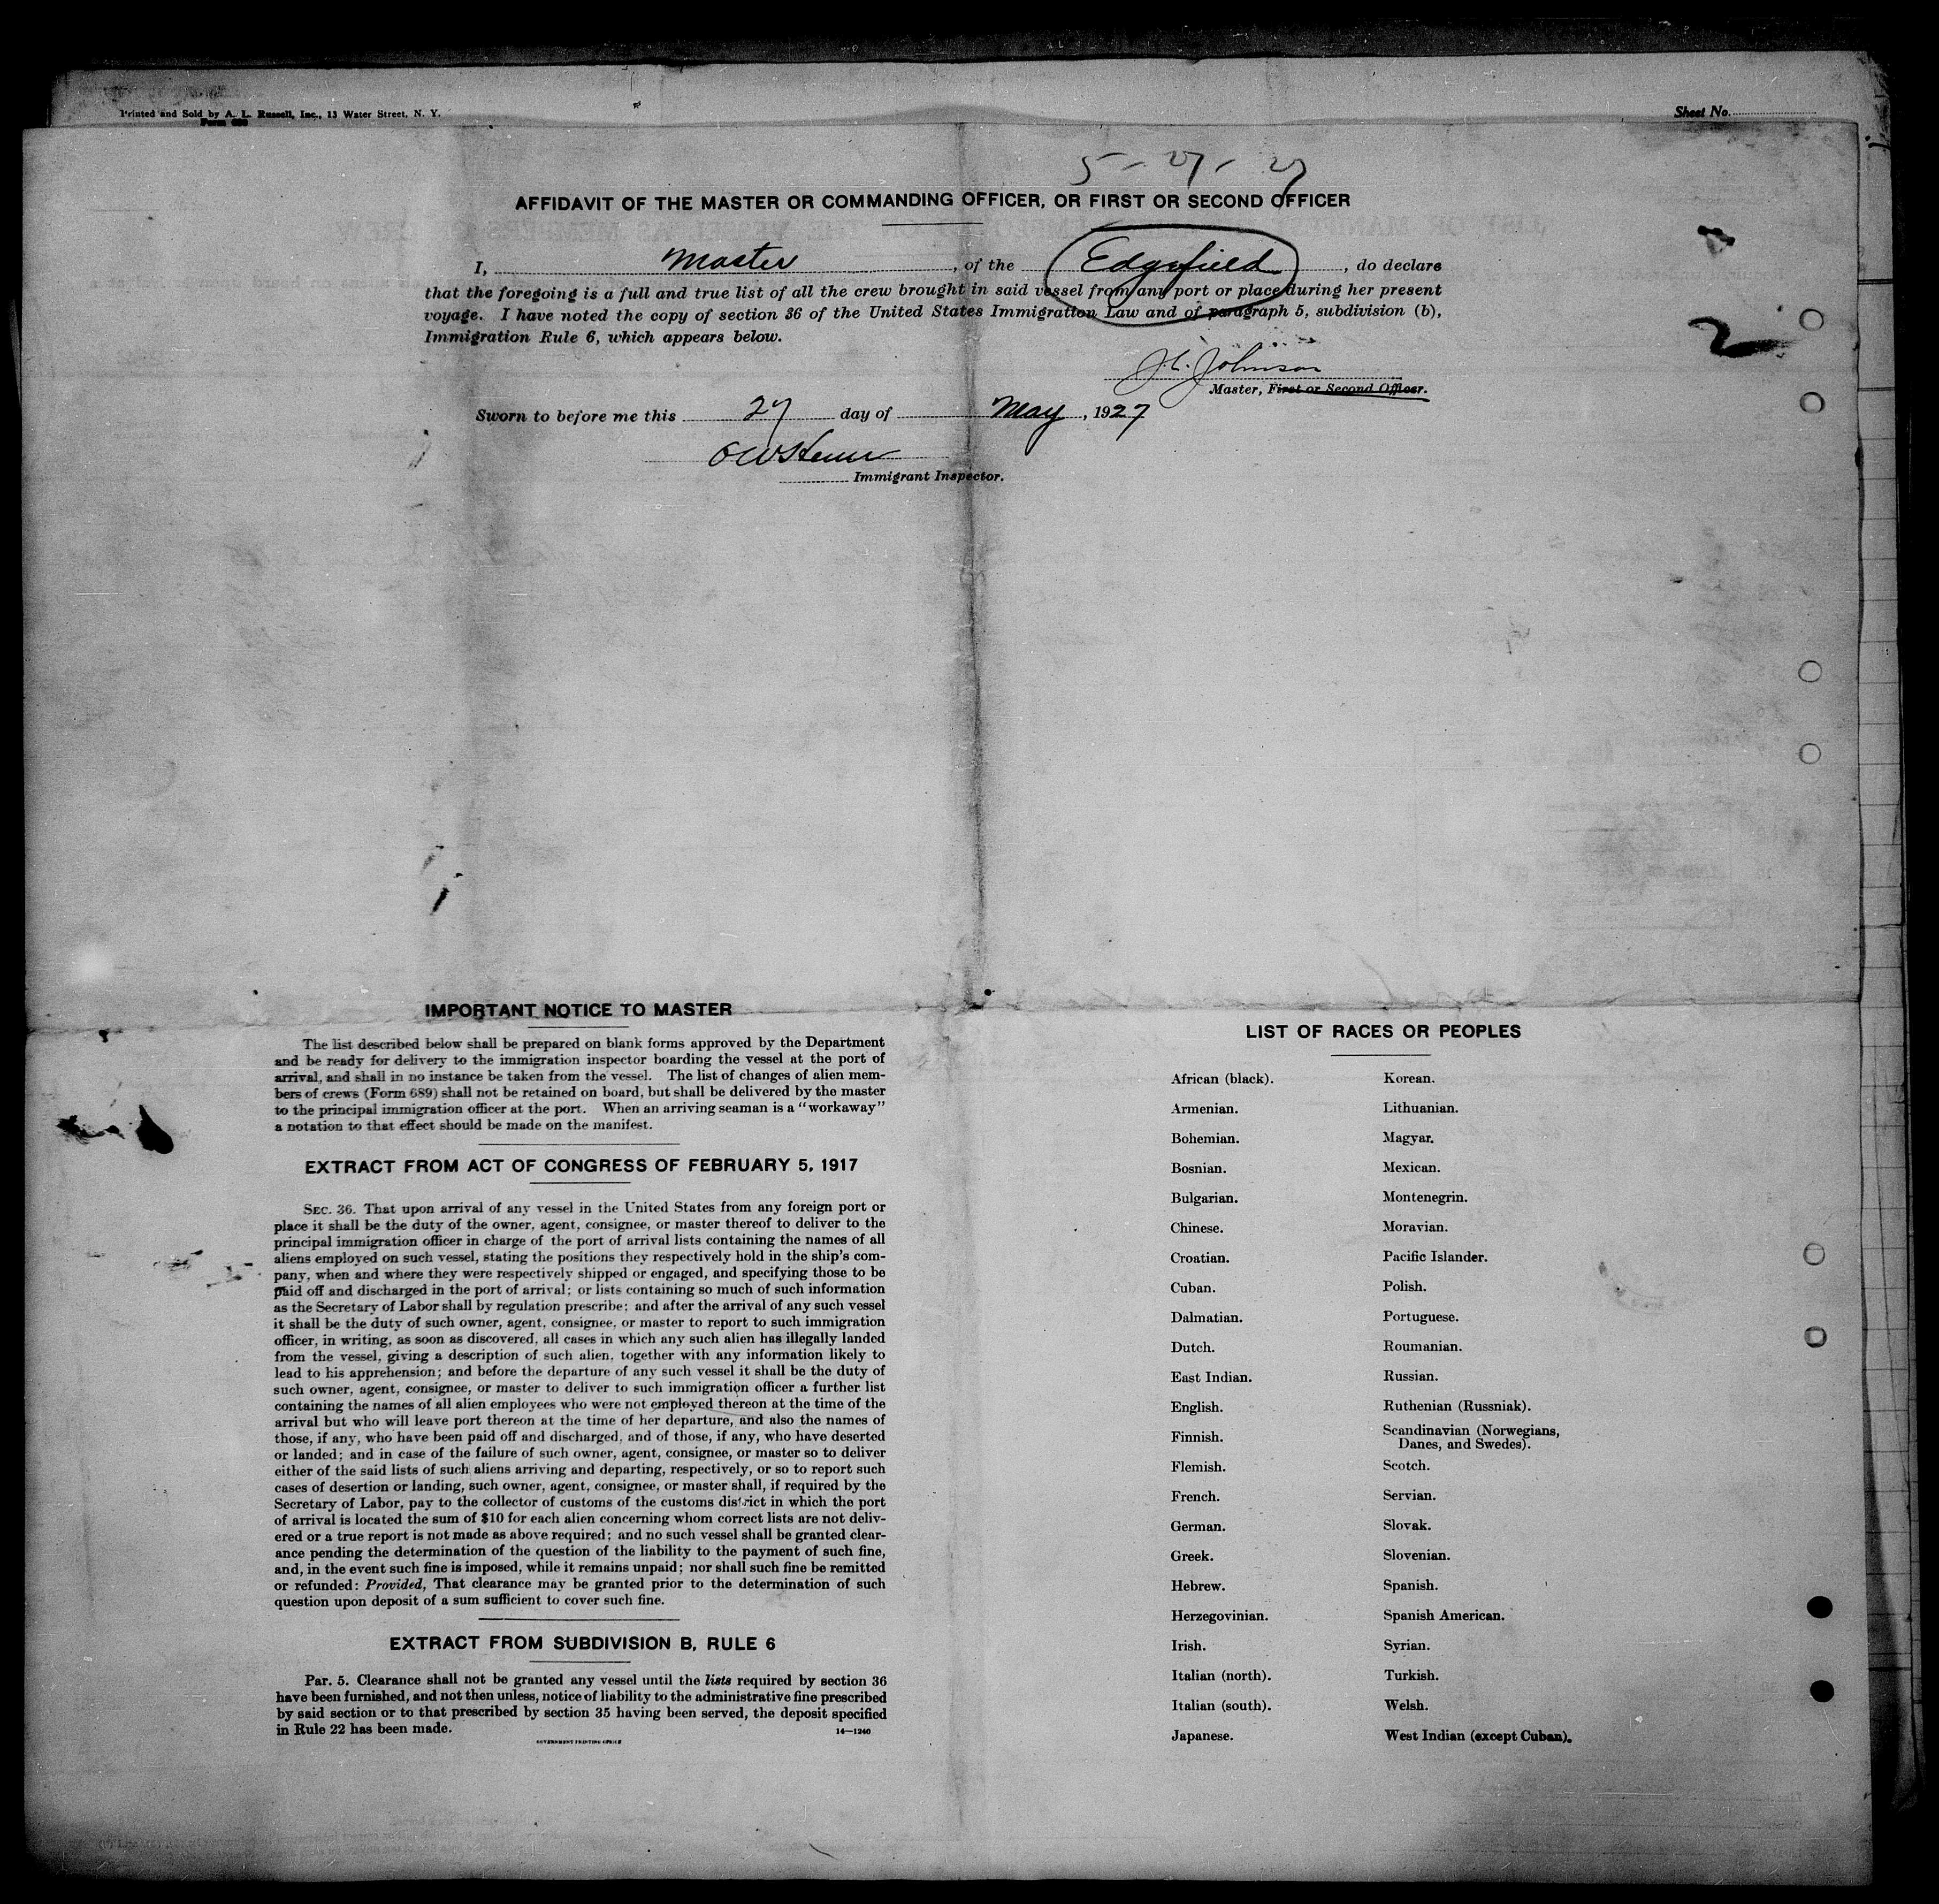 Printed and Sold by A. L. Russell, Inc., 13 Water Street, N. Y.
Form 680
Sheet No.
5-27-27
AFFIDAVIT OF THE MASTER OR COMMANDING OFFICER, OR FIRST OR SECOND OFFICER
I, Master, of the Edgefield, do declare
that the foregoing is a full and true list of all the crew brought in said vessel from any port or place during her present
voyage. I have noted the copy of section 36 of the United States Immigration Law and of paragraph 5, subdivision (b),
Immigration Rule 6, which appears below.
2
J. L. Johnson
Master, First or Second Officer.
Sworn to before me this 27 day of May, 1927
Immigrant Inspector.
IMPORTANT NOTICE TO MASTER
The list described below shall be prepared on blank forms approved by the Department
and be ready for delivery to the immigration inspector boarding the vessel at the port of
arrival, and shall in no instance be taken from the vessel. The list of changes of alien mem-
bers of crews (Form 689) shall not be retained on board, but shall be delivered by the master
to the principal immigration officer at the port. When an arriving seaman is a "workaway"
a notation to that effect should be made on the manifest.
EXTRACT FROM ACT OF CONGRESS OF FEBRUARY 5, 1917
SEC. 36. That upon arrival of any vessel in the United States from any foreign port or
place it shall be the duty of the owner, agent, consignee, or master thereof to deliver to the
principal immigration officer in charge of the port of arrival lists containing the names of all
aliens employed on such vessel, stating the positions they respectively hold in the ship's com-
pany, when and where they were respectively shipped or engaged, and specifying those to be
paid off and discharged in the port of arrival; or lists containing so much of such information
as the Secretary of Labor shall by regulation prescribe; and after the arrival of any such vessel
it shall be the duty of such owner, agent, consignee, or master to report to such immigration
officer, in writing, as soon as discovered, all cases in which any such alien has illegally landed
from the vessel, giving a description of such alien, together with any information likely to
lead to his apprehension; and before the departure of any such vessel it shall be the duty of
such owner, agent, consignee, or master to deliver to such immigration officer a further list
containing the names of all alien employees who were not employed thereon at the time of the
arrival but who will leave port thereon at the time of her departure, and also the names of
those, if any, who have been paid off and discharged, and of those, if any, who have deserted
or landed; and in case of the failure of such owner, agent, consignee, or master so to deliver
either of the said lists of such aliens arriving and departing, respectively, or so to report such
cases of desertion or landing, such owner, agent, consignee, or master shall, if required by the
Secretary of Labor, pay to the collector of customs of the customs district in which the port
of arrival is located the sum of $10 for each alien concerning whom correct lists are not deliv-
ered or a true report is not made as above required; and no such vessel shall be granted clear-
ance pending the determination of the question of the liability to the payment of such fine,
and, in the event such fine is imposed, while it remains unpaid; nor shall such fine be remitted
or refunded: Provided, That clearance may be granted prior to the determination of such
question upon deposit of a sum sufficient to cover such fine.
EXTRACT FROM SUBDIVISION B, RULE 6
Par. 5. Clearance shall not be granted any vessel until the lists required by section 36
have been furnished, and not then unless, notice of liability to the administrative fine prescribed
by said section or to that prescribed by section 35 having been served, the deposit specified
in Rule 22 has been made.
14—1240
GOVERNMENT PRINTING OFFICE
LIST OF RACES OR PEOPLES
African (black).
Armenian.
Bohemian.
Bosnian.
Bulgarian.
Chinese.
Croatian.
Cuban.
Dalmatian.
Dutch.
East Indian.
English.
Finnish.
Flemish.
French.
German.
Greek.
Hebrew.
Herzegovinian.
Irish.
Italian (north).
Italian (south).
Japanese.
Korean.
Lithuanian.
Magyar.
Mexican.
Montenegrin.
Moravian.
Pacific Islander.
Polish.
Portuguese.
Roumanian.
Russian.
Ruthenian (Russniak).
Scandinavian (Norwegians,
Danes, and Swedes).
Scotch.
Servian.
Slovak.
Slovenian.
Spanish.
Spanish American.
Syrian.
Turkish.
Welsh.
West Indian (except Cuban).